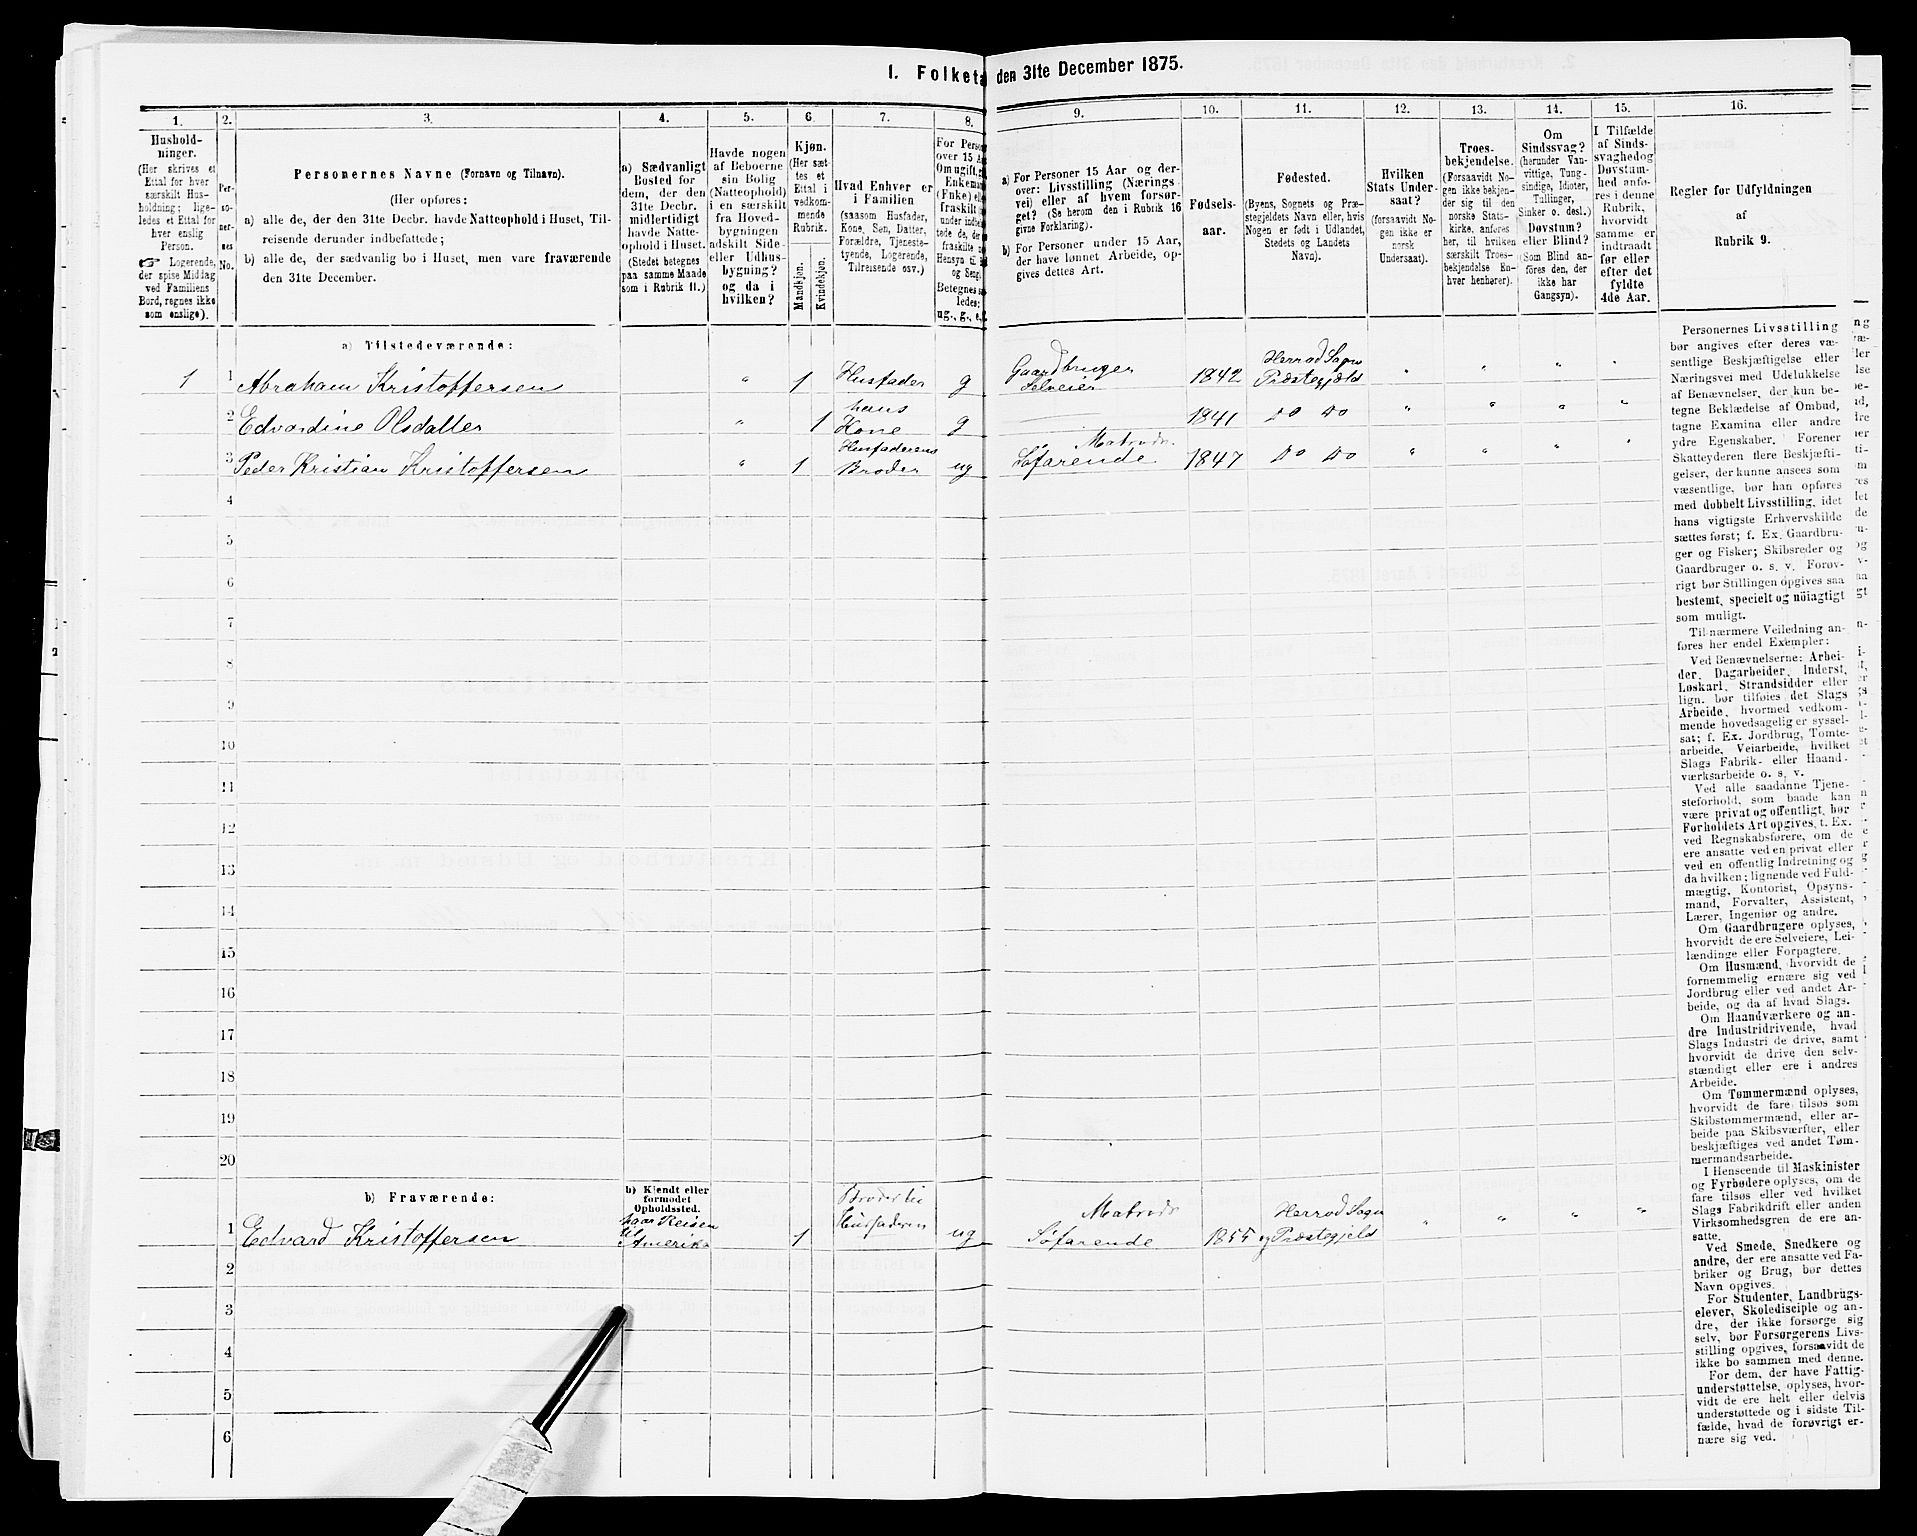 I. Folketa den 31te December 1875.
1. 2. 3. 4. 5. 6. 7. 8. 9. 10. 11. 12. 13. 14. 15. 16.
Hushold-
ninger.
(Her skrives et
Ettal for hver
særskilt Hus-
holdning; lige-
ledes et Ettal for
hver enslig
Person.
☞ Logerende,
der spise Middag
ved Familiens
Bord, regnes ikke
som enslige).
Per-
so-
ner-
nes
No.
Personernes Navne (Fornavn og Tilnavn).
(Her opføres:
a) alle de, der den 31te Decbr. havde Natteophold i Huset, Til-
reisende derunder indbefattede;
b) alle de, der sædvanlig bo i Huset, men vare fraværende
den 31te December.
a) Sædvanligt
Bosted for
dem, der den
31te Decbr.
midlertidigt
havde Natte-
ophold i Huset.
(Stedet betegnes
paa samme Maade
som i Rubrik 11.)
Havde nogen
af Beboerne
sin Bolig
(Natteophold)
i en særskilt
fra Hoved-
bygningen
adskilt Side-
eller Udhus-
bygning?
og da i
hvilken?
Kjøn.
(Her sæt-
tes et
Ettal i
vedkom-
mende
Rubrik.
Mandkjøn.
Kvindekjøn.
Hvad Enhver er
i Familien
(saasom Husfader,
Kone, Søn, Datter,
Forældre, Tjeneste-
tyende, Logerende,
Tilreisende osv.)
For Person
over 15 Aa
Om ugift, g
Enkeman
(Enke) el
fraskilt
under indbe
tede de, der
fraskilte
Hensyn til
og Seng
Betegnes s
ledes:
ug., g., e,
a) For Personer 15 Aar og der-
over: Livsstilling (Nærings-
vei) eller af hvem forsør-
get? (Se herom den i Rubrik 16
givne Forklaring).
b) For Personer under 15 Aar,
der have lønnet Arbeide, op-
gives dettes Art.
Fødsels-
aar.
Fødested.
(Byens, Sognets og Præ-
stegjeldets Navn eller, hvis
Nogen er født i Udlandet,
Stedets og Landets
Navn).
Hvilken
Stats Under-
saat?
(forsaavidt No-
gen ikke er
norsk
Undersaat).
Troes-
bekjendelse.
(Forsaavidt No-
gen ikke bekjen-
der sig til den
norske Stats-
kirke, anføres
her, til hvilken
særskilt Troes-
bekjendelse En-
hver henhører).
Om
Sindssvag?
(herunder Van-
vittige, Tung-
sindige, Idioter,
Tullinger,
Sinker o. desl.)
Døvstum?
eller Blind?
(Som Blind an-
føres den, der
ikke har
Gangsyn).
I Tilfælde
af Sinds-
svaghed og
Døvstum-
hed anfø-
res i denne
Rubrik,
hvorvidt
samme er
indtraadt
før eller
efter det
fyldte
4de Aar.
Regler for Udfyldningen
af
Rubrik 9.
a) Tilstedeværende:
1 1 Abraham Kristoffersen " 1 Husfader g Gaardbruger Selveier 1842 Herrod Sogn Præstegjeld " " " "
2 Edvardine Olsdatter " 1 hans Kone g 1841 do do " " " "
3 Peder Kristian Kristoffersen " 1 Husfaderens Broder ug Matrods Søfarende 1847 do do " " " "
4
5
6
7
8
9
10
11
12
13
14
15
16
17
18
19
20
b) Fraværende:
b) Kjendt eller
formodet
Opholdssted.
1 Edvard Kristoffersen paa Reisen til Amerika 1 Broder til Husfaderen ug Matrods Søfarende 1855 Herrod Sogn og Præstegjeld " " " "
2
3
4
5
6
Personernes Livsstilling
bør angives efter deres væ-
sentlige Beskjæftigelse eller
Næringsvei med Udelukkelse
af Benævnelser, der kun be-
tegne Beklædelse af Ombud,
tagne Examina eller andre
ydre Egenskaber. Forener
Skatteyderen flere Beskjæfti-
gelser, der kunne ansees som
væsentlige, bør han opføres
med dobbelt Livsstilling, idet
hans vigtigste Erhvervskilde
sættes først; f. Ex. Gaardbru-
ger og Fisker; Skibsreder og
Gaardbruger o. s. v. Forøv-
rigt bør Stillingen opgives saa
bestemt, specielt og nöiagtigt
som muligt.
Til nærmere Veiledning an-
føres her endel Exempler:
Ved Benævnelserne: Arbei-
der, Dagarbeider, Inderst,
Løskarl, Strandsidder eller
lign. bør tilføies det Slags
Arbeide, hvormed vedkom-
mende hovedsagelig er syssel-
sat; f. Ex. Jordbrug, Tomte-
arbeide, Veiarbeide, hvilket
Slags Fabrik- eller Haand-
værksarbeide o. s. v.
Ved alle saadanne Tjene-
steforhold, som baade kan
være privat og offentligt, bør
Forholdets Art opgives, t. Ex.
ved Regnskabsførere, om de
ere ansatte ved en privat eller
ved en offentlig Indretning og
da hvilken; lignende ved Fuld-
mægtig, Kontorist, Opsyns-
mand, Forvalter, Assistent,
Lærer, Ingeniør og andre.
Om Gaardbrugere oplyses,
hvorvidt de ere Selveiere, Lei-
lændinge eller Forpagtere.
Om Husmænd, hvorvidt de
fornemmelig ernære sig ved
Jordbrug eller ved andet Ar-
beide, og da af hvad Slags.
Om Haandværkere og an-
dre Industridrivende, hvad
Slags Industri de drive, samt
hvorvidt de drive den selv-
stændigt eller ere i andres
Arbeide.
Om Tømmermænd oplyses,
hvorvidt de fare tilsøs som
Skibstømmermænd, eller ar-
beide paa Skibsværfter, eller
beskjæftiges ved andet Tøm-
mermandsarbeide.
I Henseende til Maskinister
og Fyrbødere oplyses, om de
fare tilsøs eller ved hvilket
Slags Fabrikdrift eller anden
Virksomhedsgren de ere an-
satte.
Ved Smede, Snedkere og
andre, der ere ansatte ved Fa-
briker og Brug, bør dettes
Navn opgives.
For Studenter, Landbrugs-
elever, Skoledisciple og an-
dre, der ikke forsørge sig
selv, bør Forsørgerens Livs-
stilling opgives, forsaavidt de
ikke bo sammen med denne.
For dem, der have Fattig-
understøttelse, oplyses, hvor-
vidt de ere helt eller delvis
understøttede og i sidste Til-
fælde, hvad de forøvrigt er-
nære sig ved.